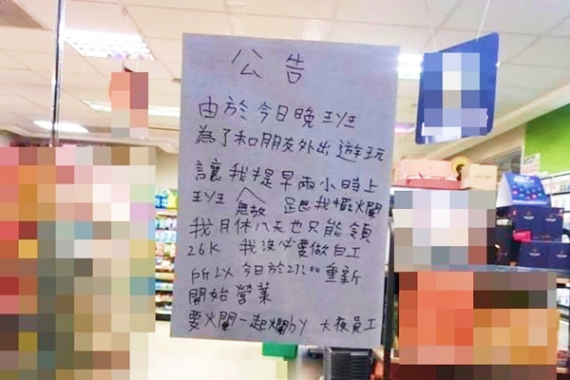 公告
由於今日晚班
為了和朋友外出遊玩
讓我提早兩小時上
班 無故 跟我擺爛
我月休八天也只能領
26K 我沒必要做白工
所以今日於23:00重新
開始營業
要爛一起爛by 大夜員工